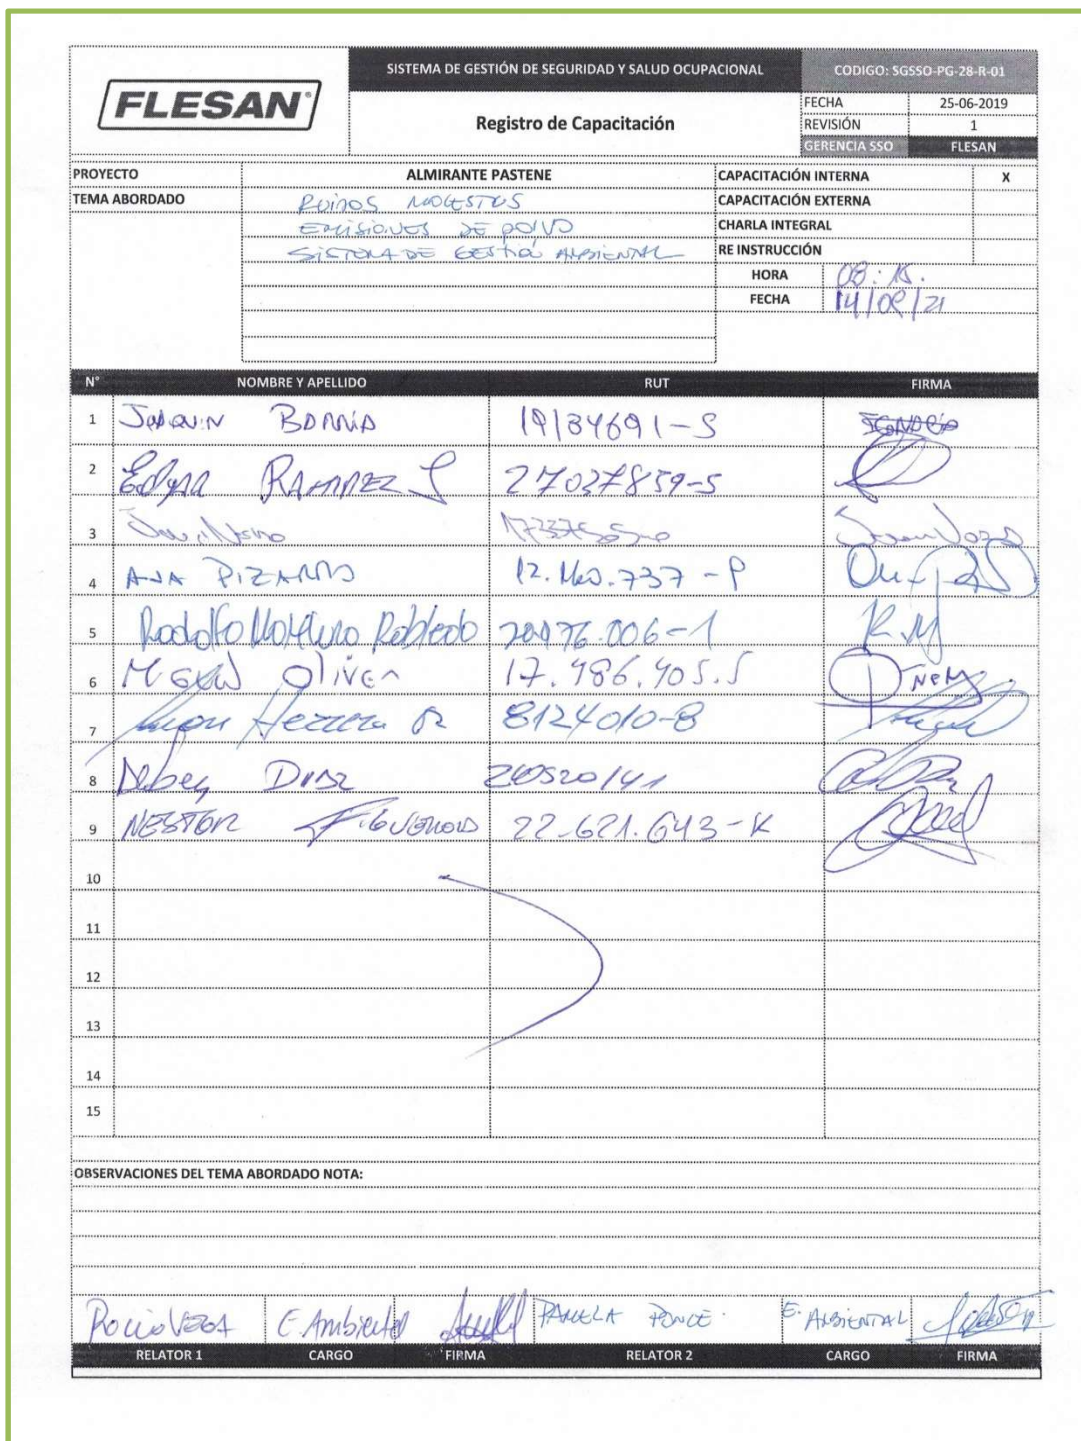 FLESAN
SISTEMA DE GESTIÓN DE SEGURIDAD Y SALUD OCUPACIONAL
CODIGO: SGSSO-PG-28-R-01
Registro de Capacitación
FECHA 25-06-2019
REVISIÓN 1
GERENCIA SSO FLESAN
PROYECTO ALMIRANTE PASTENE CAPACITACIÓN INTERNA X
TEMA ABORDADO RUIDOS MOLESTOS CAPACITACIÓN EXTERNA
EMISIONES DE POLVO CHARLA INTEGRAL
SISTEMA DE GESTIÓN AMBIENTAL RE INSTRUCCIÓN
HORA 08:15.
FECHA 14/09/21
N° NOMBRE Y APELLIDO RUT FIRMA
1 JOAQUIN 19134691-5
2 Edgar RAMIREZ 27037859-5
3
4 ANA PIZARRO 737
5 Rodolfo Robledo 006-1 R.M
6 Oliver 17.986.905.5
7 Herrera R 8124010-8
8 DIAZ
9 NESTOR FIGUEROA 22.621.643-K
10
11
12
13
14
15
OBSERVACIONES DEL TEMA ABORDADO NOTA:
Rocio VEGA E. Ambiental PAMELA PONCE. E. AMBIENTAL
RELATOR 1 CARGO FIRMA RELATOR 2 CARGO FIRMA